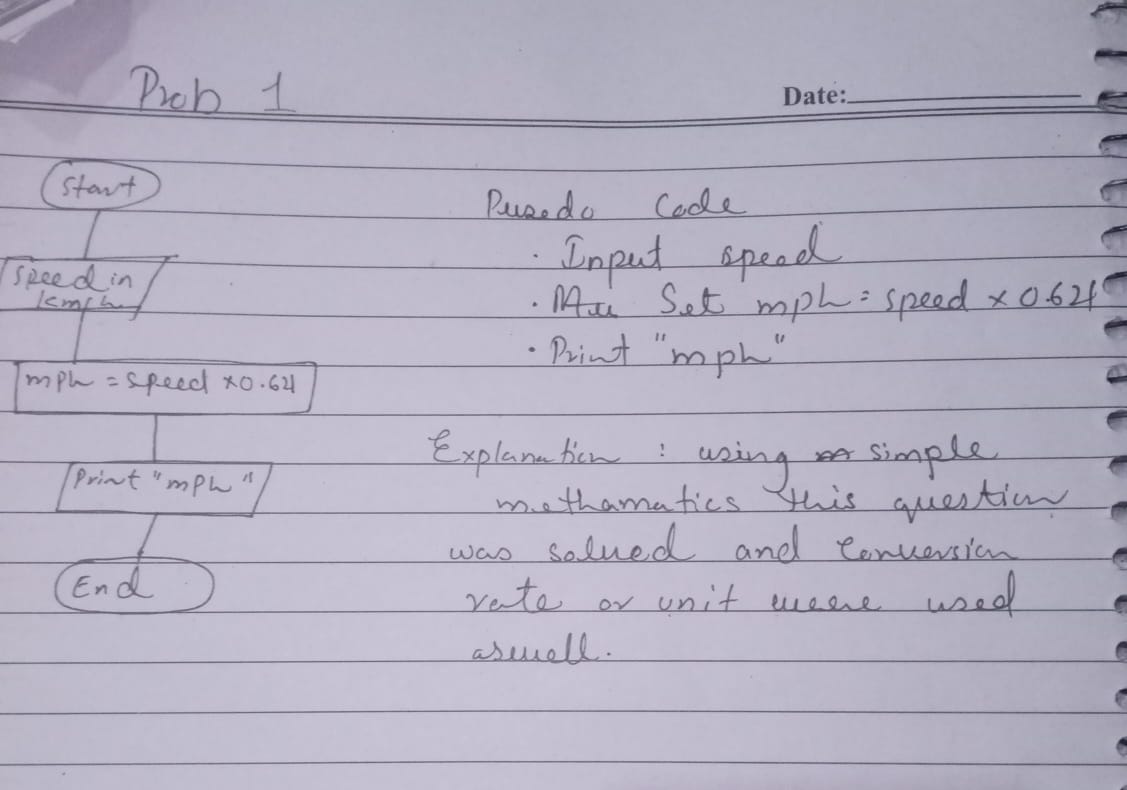 Prob 1
Date:
Start
Speed in
kmph
mph = speed x0.621
Print "mph"
End
Pusedo Code
· Input speed
· Set mph = speed x 0.621
· Print "mph"
Explanation : using simple
methamatics this question
was solued and Conversion
rate or unit weere used
aswell.